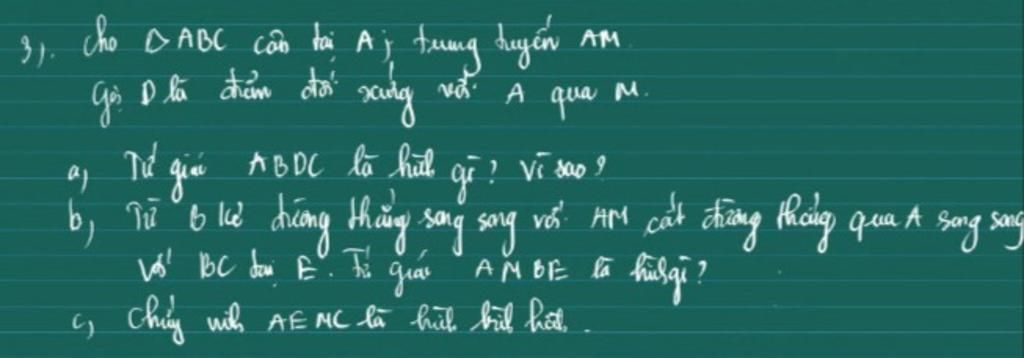 3). Cho △ ABC cân tại A; trung tuyến AM.
Gọi D là điểm đối xứng với A qua M.
a, Tứ giác ABDC là hình gì? Vì sao?
b, Từ B kẻ đường thẳng song song với AM cắt đường thẳng qua A song song
với BC tại E. Tứ giác AMBE là hình gì?
c, Chứng minh AEMC là hình bình hành.